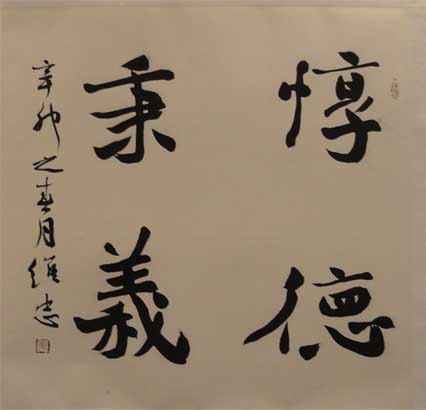 惇德
秉義
辛卯之春月維忠